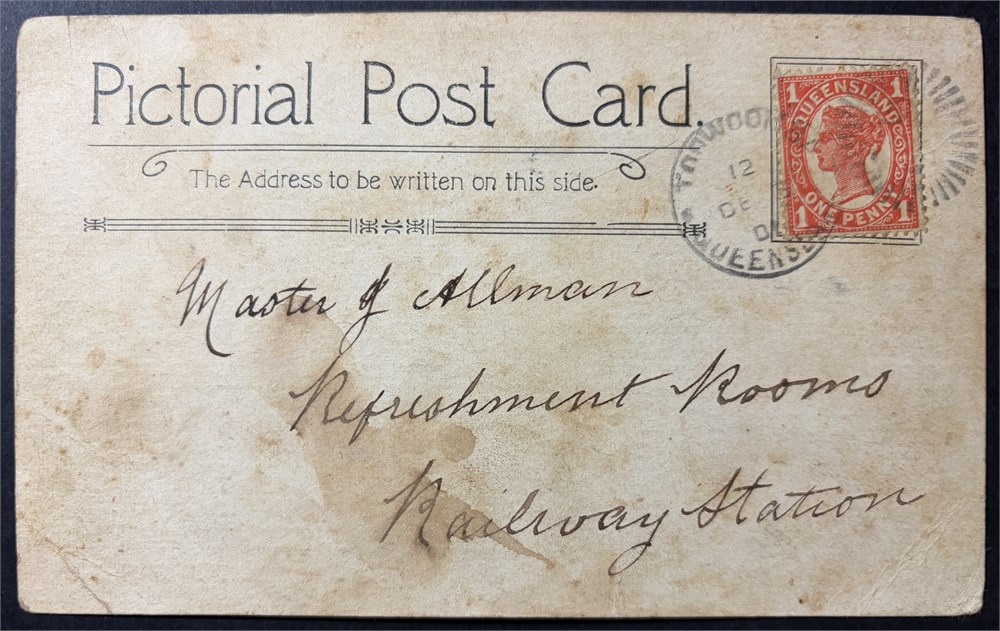 Pictorial Post Card.
The Address to be written on this side.
TOOWOO
12
DE
QUEENSLA
1 1
QUEENSLAND
ONE PENNY
1 1
Master J Allman
Refreshment Rooms
Railway Station